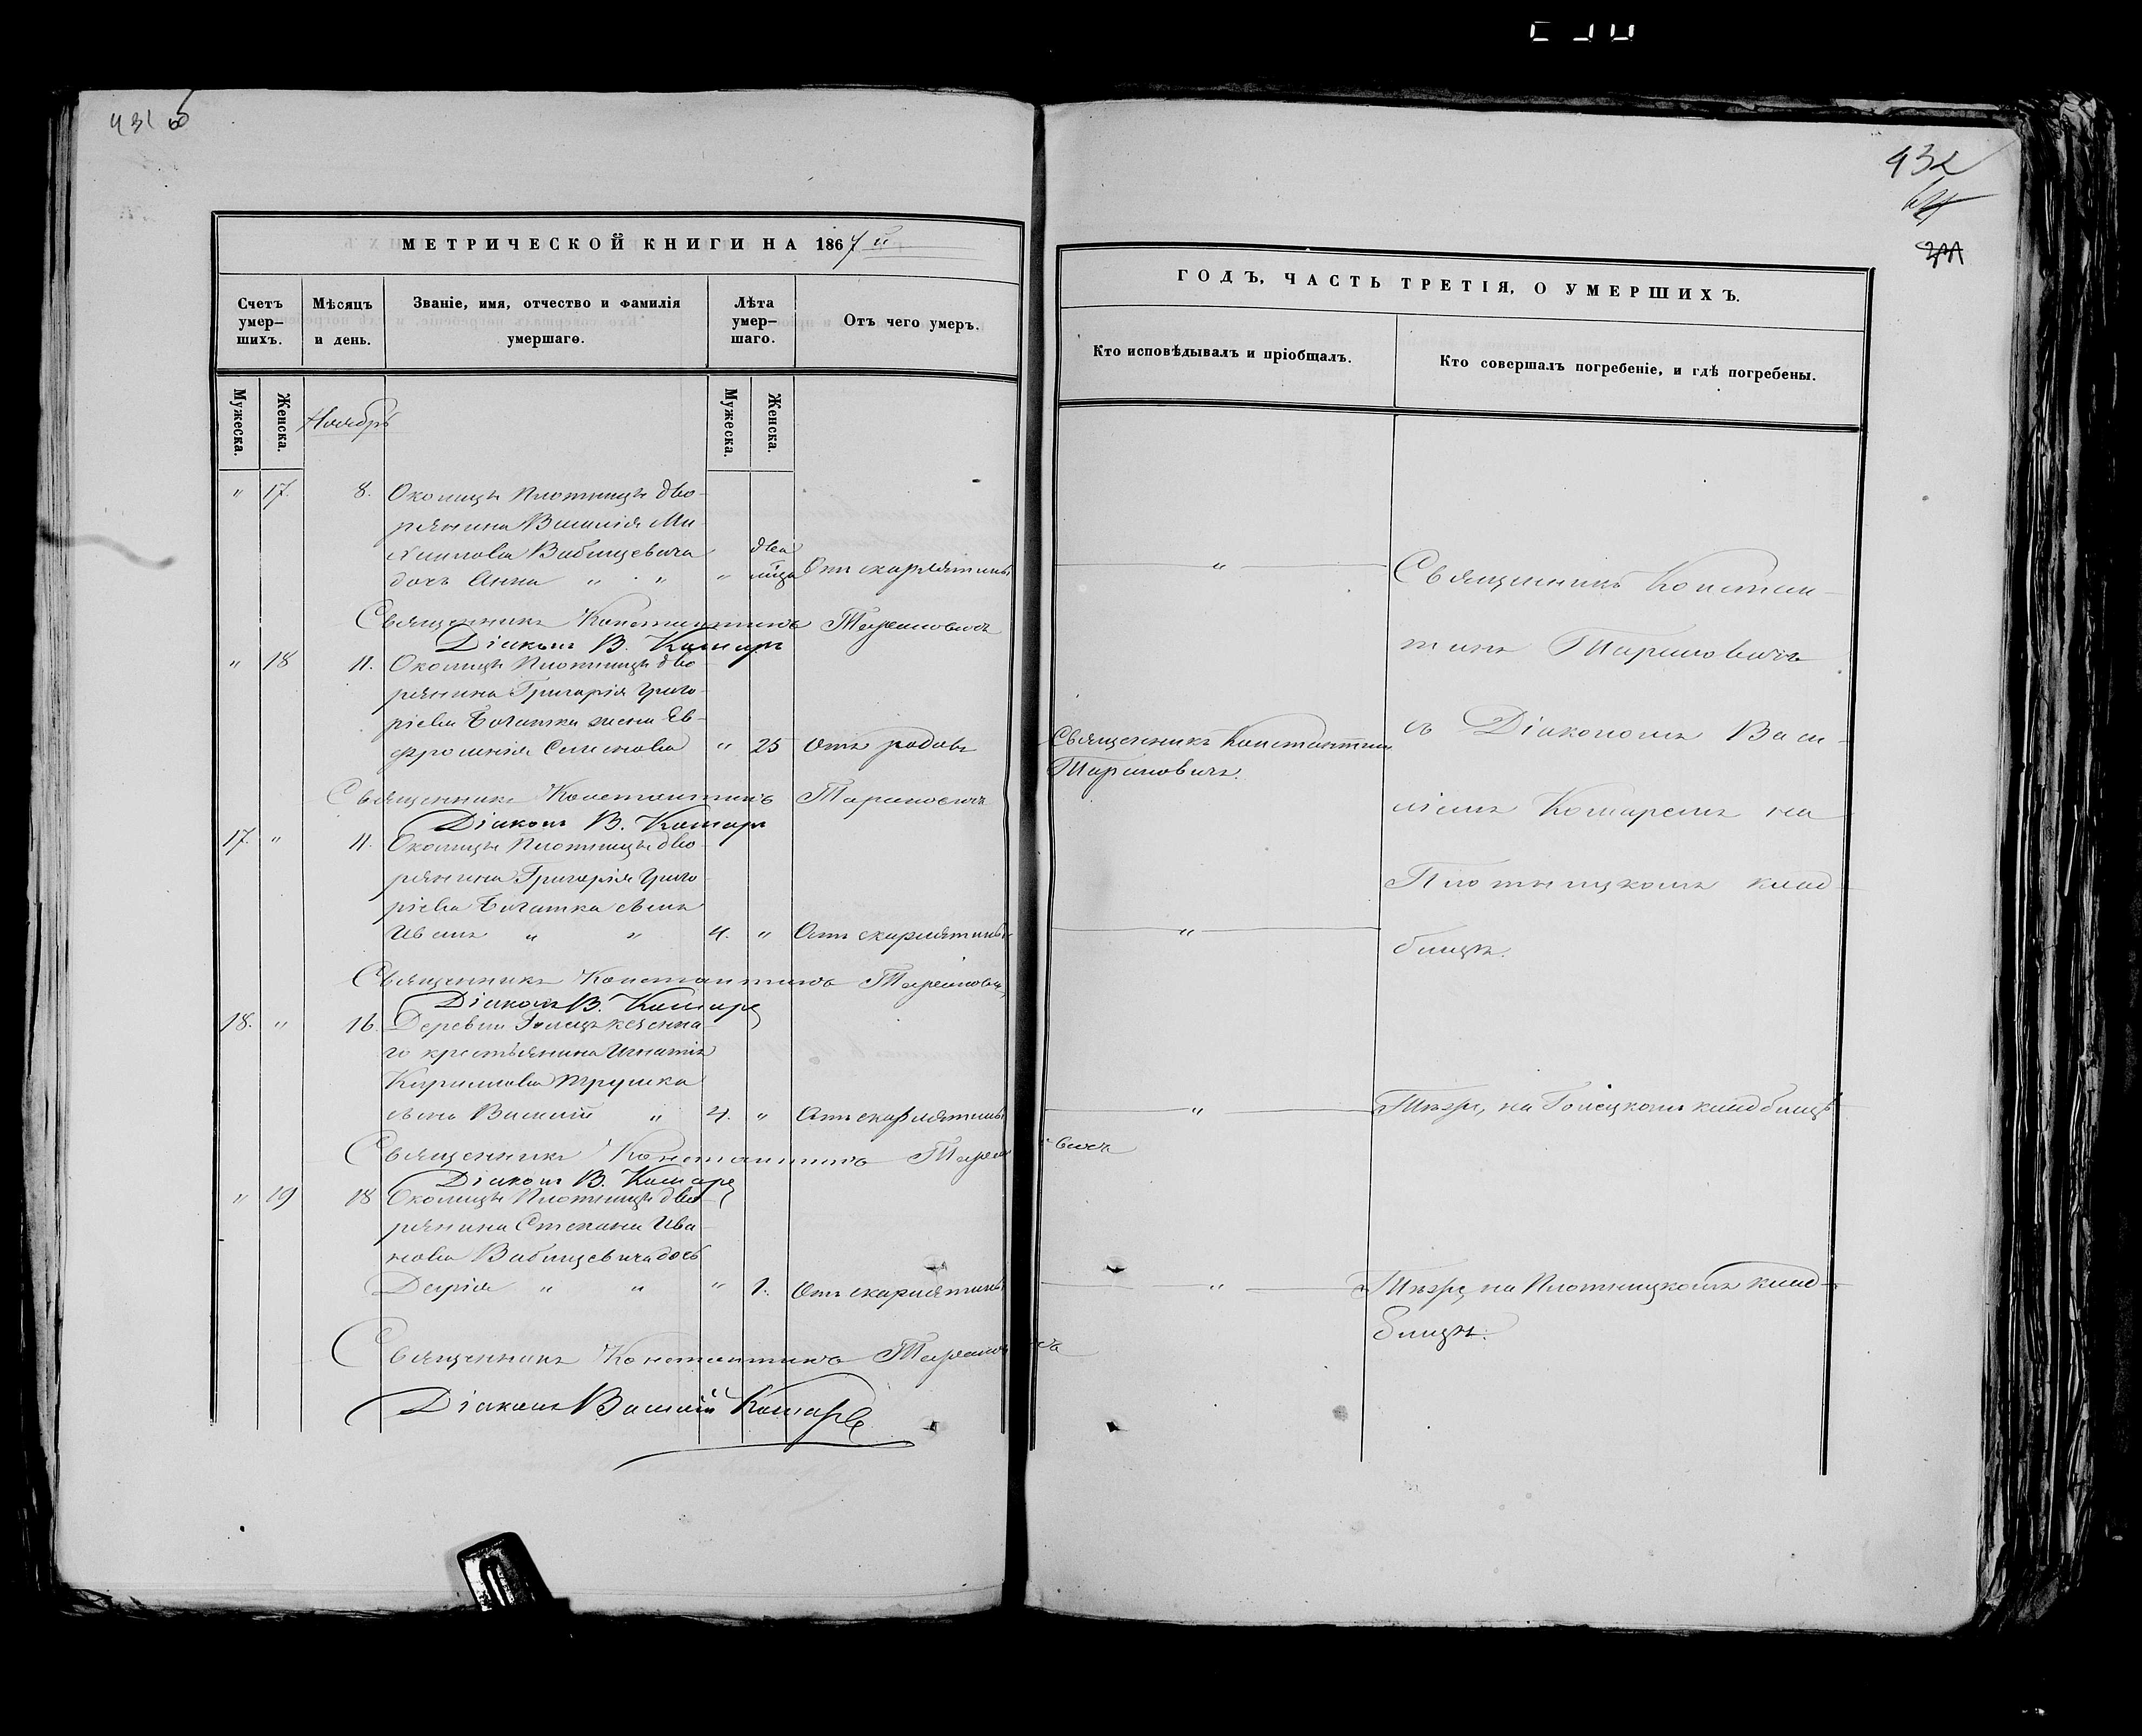 431 об
МЕТРИЧЕСКОЙ КНИГИ НА 1867й
Счетъ умер-шихъ.
Мѣсяцъ и день.
Званіе, имя, отчество и фамилія умершаго.
Лѣта умер-шаго.
Отъ чего умеръ.
Мужеска.
Женска.
Ноябрь
Мужеска.
Женска.
" 17. 8. Околицы Плотницы дво-
рянина Василія Ми-
хаилова Бабицевича два
дочь Анна " " " мѣсяца Отъ скарлятины
Священникъ Константинъ Тарановичъ
Діаконъ В. Комаръ
" 18 11. Околицы Плотницы дво-
рянина Григорія Григо-
ріева Богатка жена Ев-
фросинія Семенова " 25 Отъ родовъ
Священникъ Константинъ Тарановичъ
Діаконъ В. Комаръ
17. " 11. Околицы Плотницы дво-
рянина Григорія Григо-
ріева Богатка сынъ
Иванъ " " 4. " Отъ скарлятины
Священникъ Константинъ Тарановичъ
Діаконъ В. Комаръ
18. " 16. Деревни Голецъ казенна-
го крестьянина Игнатія
Кириллова Трушка
сынъ Василій " 4. " Отъ скарлятины
Священникъ Константинъ Тарановичъ
Діаконъ В. Комаръ
" 19 18 Околицы Плотницы дво-
рянина Стефана Ива-
нова Бабицевича дочь
Дарія " " " 1. Отъ скарлятины
Священникъ Константинъ Тарановичъ
Діаконъ Василій Комаръ
432
ГОДЪ, ЧАСТЬ ТРЕТІЯ, О УМЕРШИХЪ.
Кто исповѣдывалъ и пріобщалъ.
Кто совершалъ погребеніе, и гдѣ погребены.
"
Священникъ Констан-
тинъ Тарановичъ
Священникъ Константинъ
Тарановичъ.
съ Діакономъ Васи-
ліемъ Комаремъ на
Плотницкомъ клад-
"
бищѣ.
" Тѣже, на Голецкомъ кладбищѣ
" Тѣже, на Плотницкомъ клад-
бищѣ.